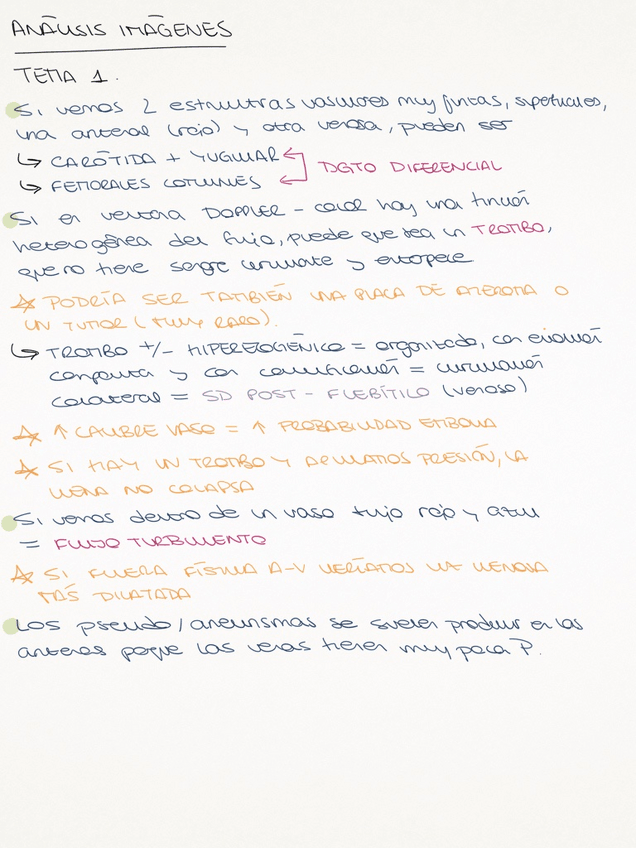 ANÁLISIS IMÁGENES
TEMA 1.
Si vemos 2 estructuras vasculares muy juntas, superficiales,
una arterial (rojo) y otra venosa, pueden ser
↳ CARÓTIDA + YUGULAR
DGTO DIFERENCIAL
↳ FEMORALES COMUNES
Si en ventana DOPPLER - color hay una tinción
heterogénea del flujo, puede que sea un TROMBO,
que no tiene sangre circulante y entorpece
☆ PODRÍA SER TAMBIÉN UNA PLACA DE ATEROMA O
UN TUMOR (MUY RARO).
↳ TROMBO +/- HIPERECOGÉNICO = organizado, con
conjunta y con = circulación
colateral = SD POST - FLEBÍTICO (venoso)
☆ ↑ CALIBRE VASO = ↑ PROBABILIDAD EMBOLIA
☆ SI HAY UN TROMBO Y APLICAMOS PRESIÓN, LA
VENA NO COLAPSA
Si vemos dentro de un vaso flujo rojo y azul
= FLUJO TURBULENTO
☆ SI FUERA FÍSTULA A-V VERÍAMOS LA VENA
MÁS DILATADA
Los pseudo/aneurismas se suelen producir en las
arterias porque las venas tienen muy poca P.